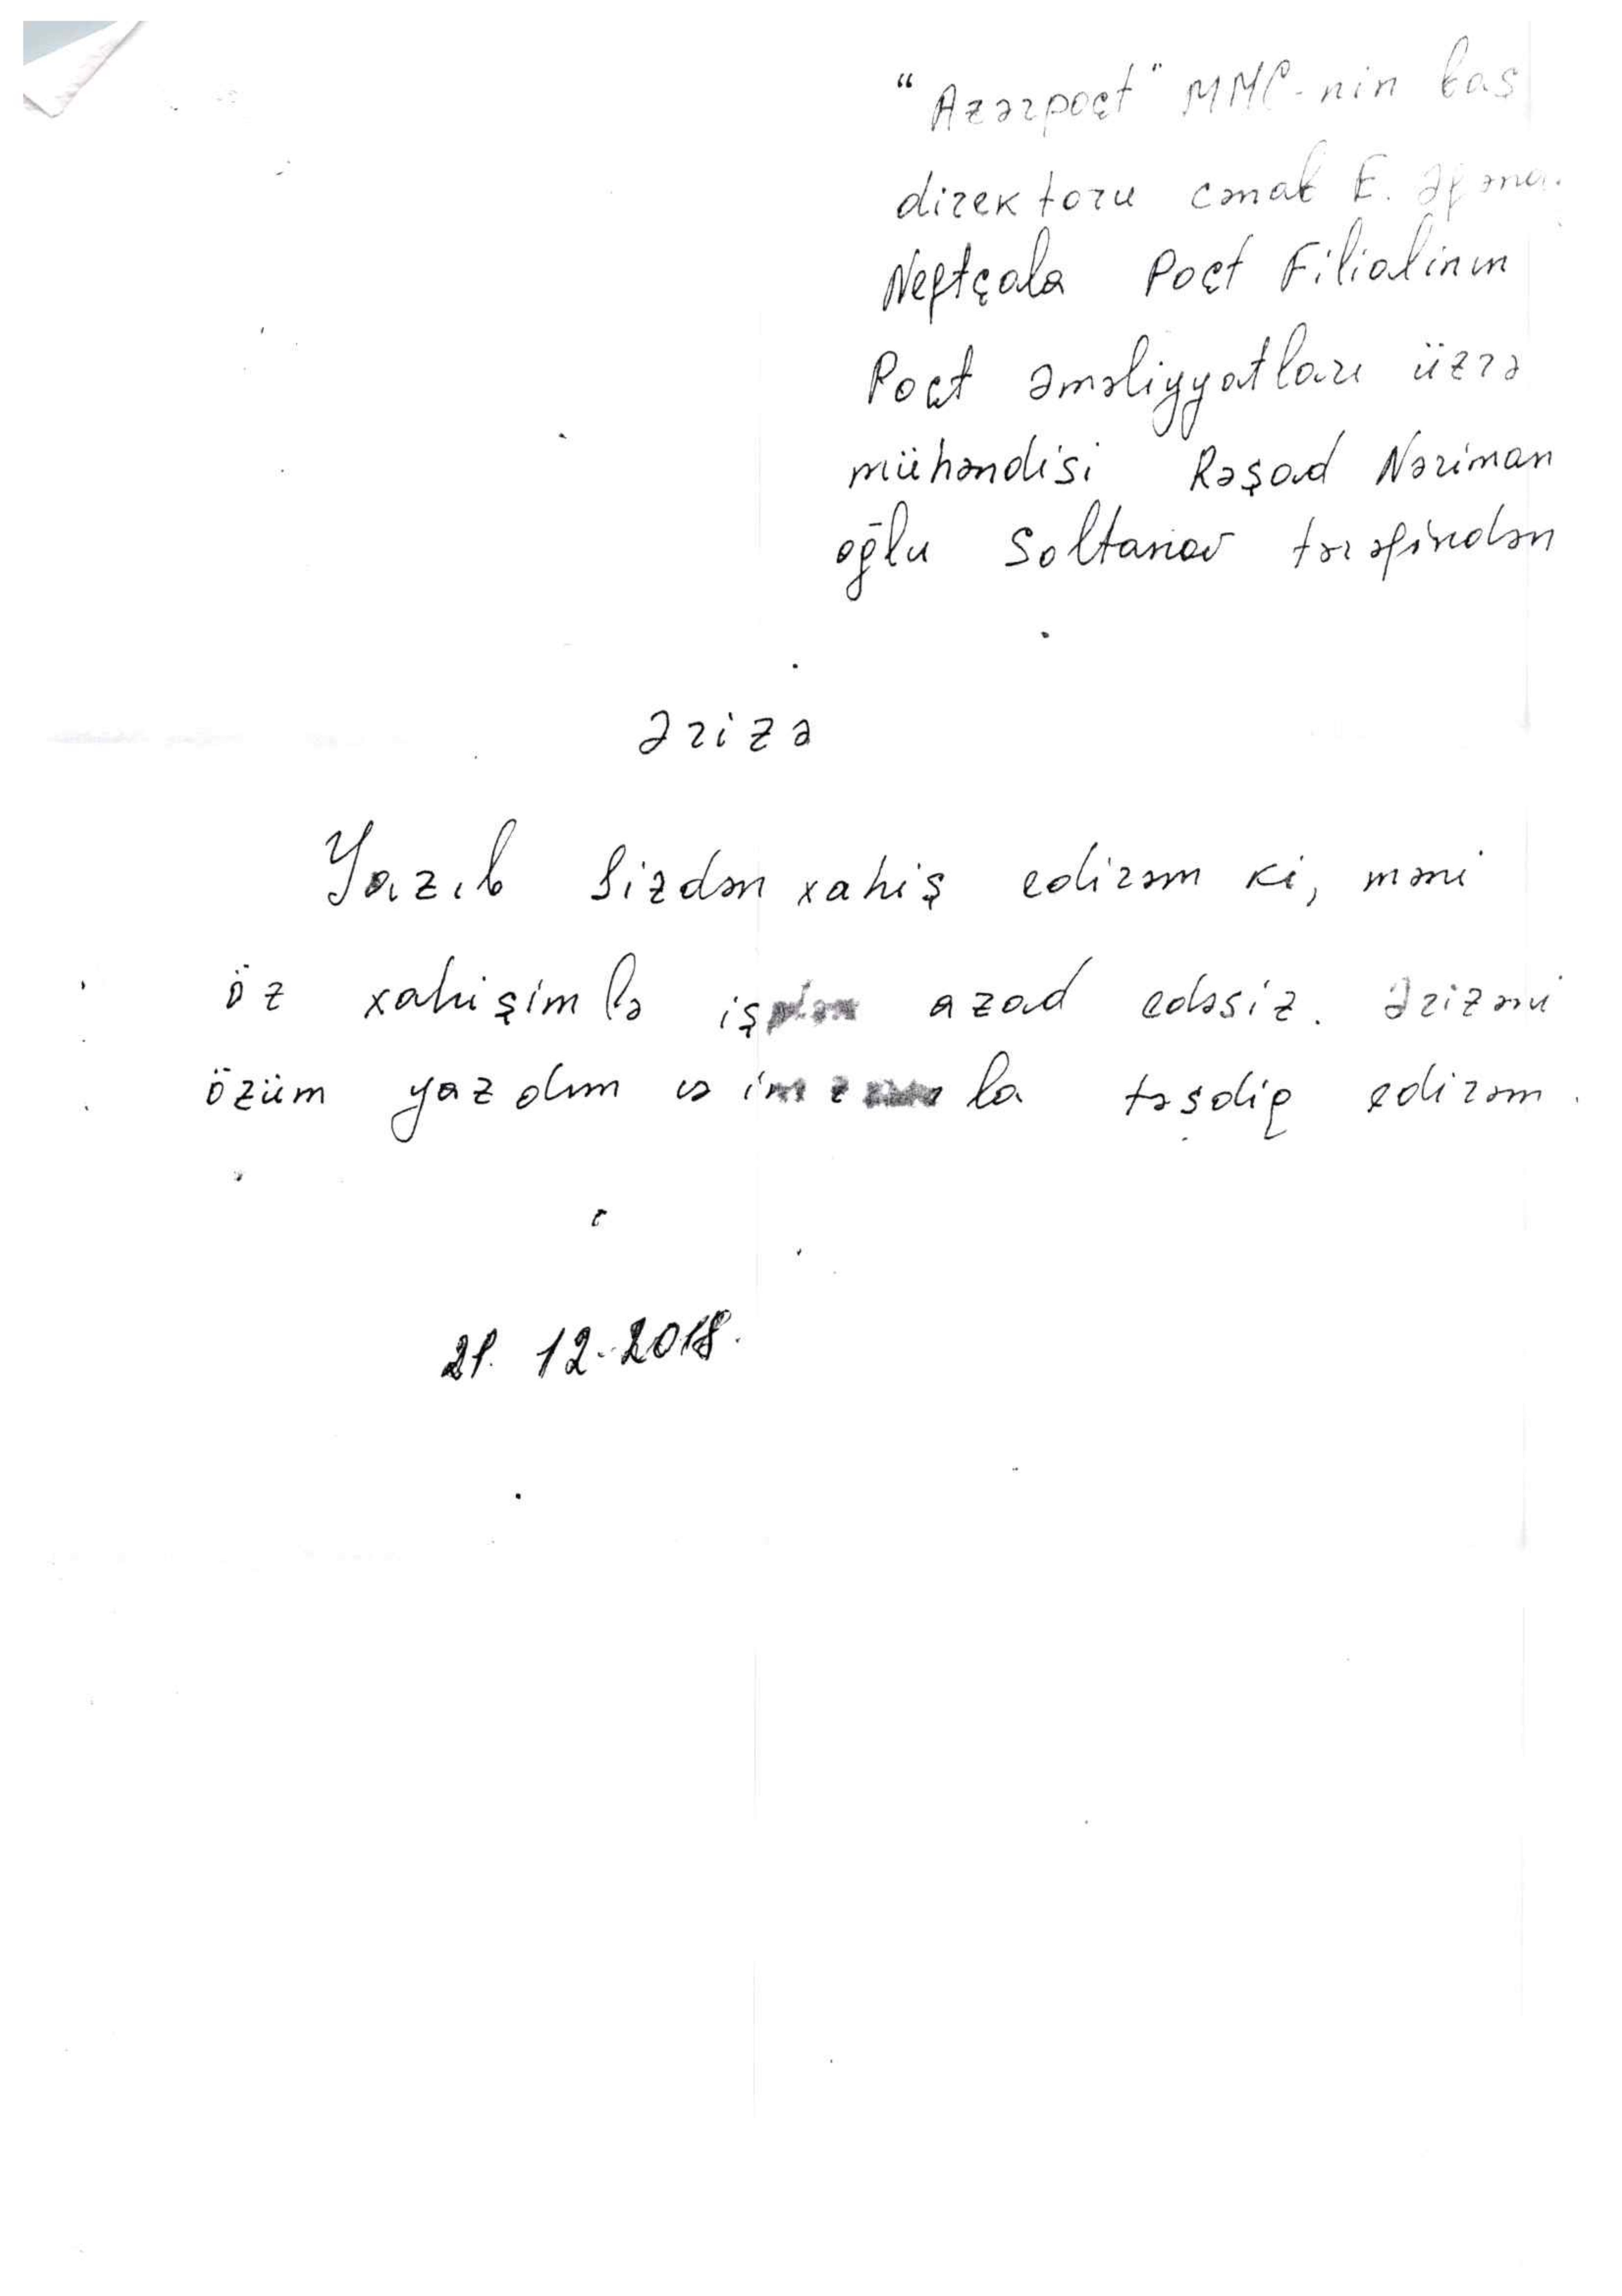 "Azərpoçt" MMC-nin baş
direktoru cənab E.
Neftçala Poçt Filialinın
Poçt əməliyyatları üzrə
mühəndisi Rəşad Nəriman
oğlu Soltanov tərəfindən
Ərizə
Yazıb Sizdən xahiş edirəm ki, məni
öz xahişimlə işdən azad edəsiz. Ərizəni
özüm yazdım və imzamla təsdiq edirəm.
21.12.2018.